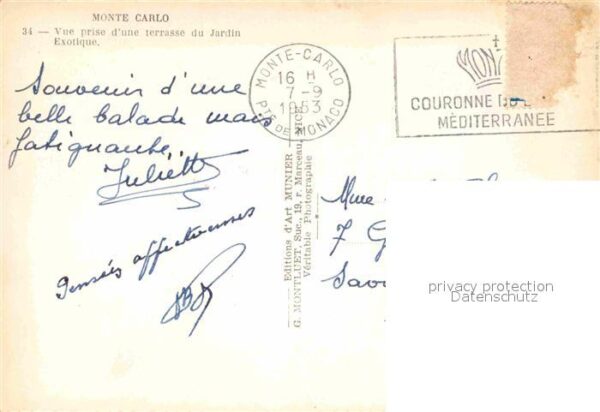 MONTE CARLO
34 — Vue prise d'une terrasse du Jardin
Exotique.
Souvenir d'une
belle balade mais
fatiguante.
Juliette
Pensées affectueuses
MONTE-CARLO
16 H
7 - 9
1953
PTÉ DE MONACO
MON
COURONNE
MÉDITERRANÉE
Editions d'Art MUNIER
G. MONTLUET, Suc., 19, r. Marceau, NICE
Véritable Photographie
Mme
7 G
Sav
privacy protection
Datenschutz